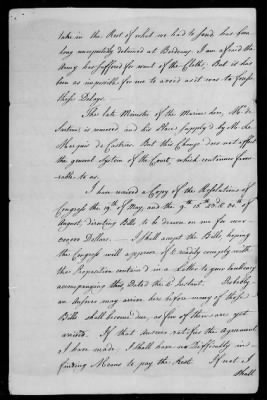 take in the Rest of what we had to send has been
long unexpectedly detained at Bordeaux. I am afraid the
Army has suffered for want of the Cloths; But it has
been as impossible for me to avoid as it was to foresee
these Delays.
The late Minister of the Marine here, Mr. de
Sartine, is removed, and his Place supply'd by M. Le
Marquis de Castries. But this Change does not affect
the general System of the Court, which continues favou-
rable to us.
I have received a Copy of the Resolutions of
Congress the 19th. of May, and the 9th 15th 23d & 30th of
August, directing Bills to be drawn on me for
00000 Dollars. I shall accept the Bills, hoping
the Congress will approve of, & readily comply with
the Proposition contain'd in a Letter to your
accompanying this, Dated the Instant. Probably
an Answer may arrive here before many of those
Bills shall become due, as few of them are yet
arrived. If that Answer ratifies the Agreement
I have made, I shall have no Difficulty in
finding Means to pay the Rest. If not I
shall